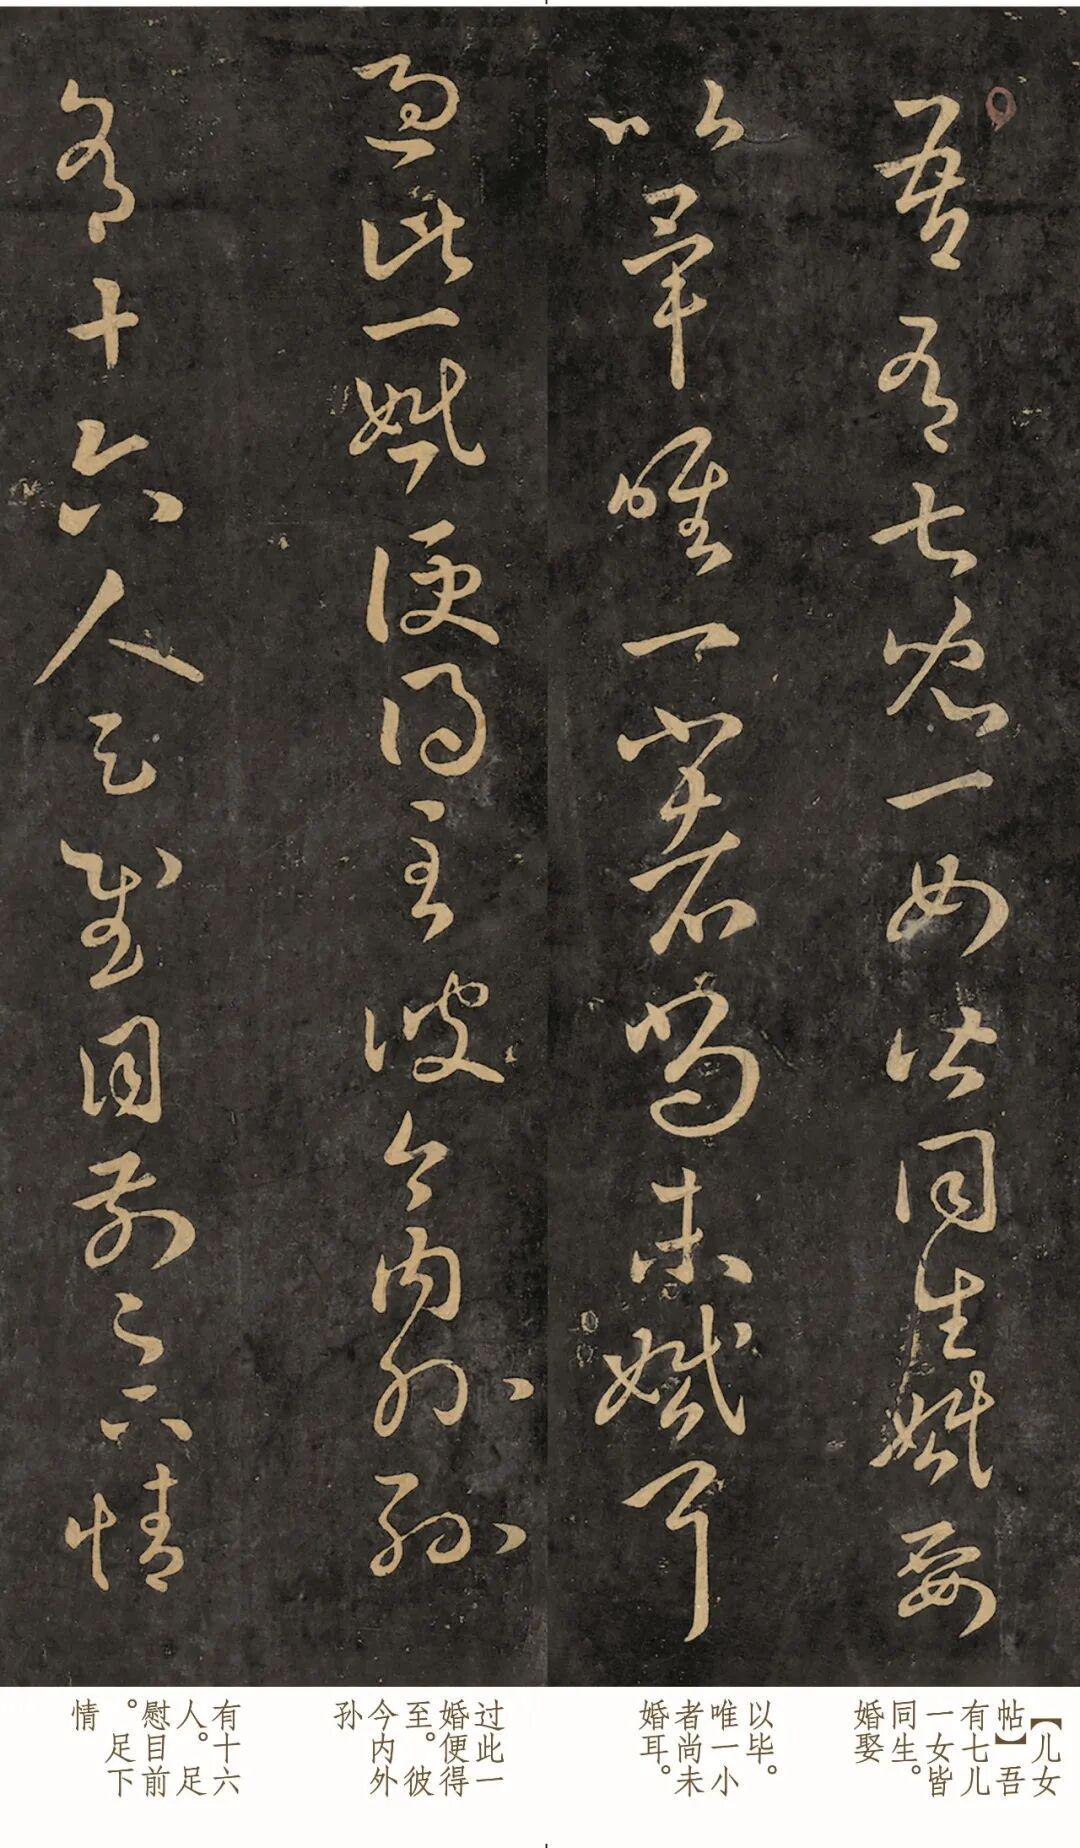 吾有七兒一女皆同生婚娶
以畢唯一小者尚未婚耳
過此一婚便得至彼今內外孫
有十六人足慰目前足下情
【儿女
帖】吾
有七儿
一女皆
同生。
婚娶
以毕。
唯一小
者尚未
婚耳。
过此一
婚便得
至。彼
今内外
孙
有十六
人。足
慰目前
。足下
情